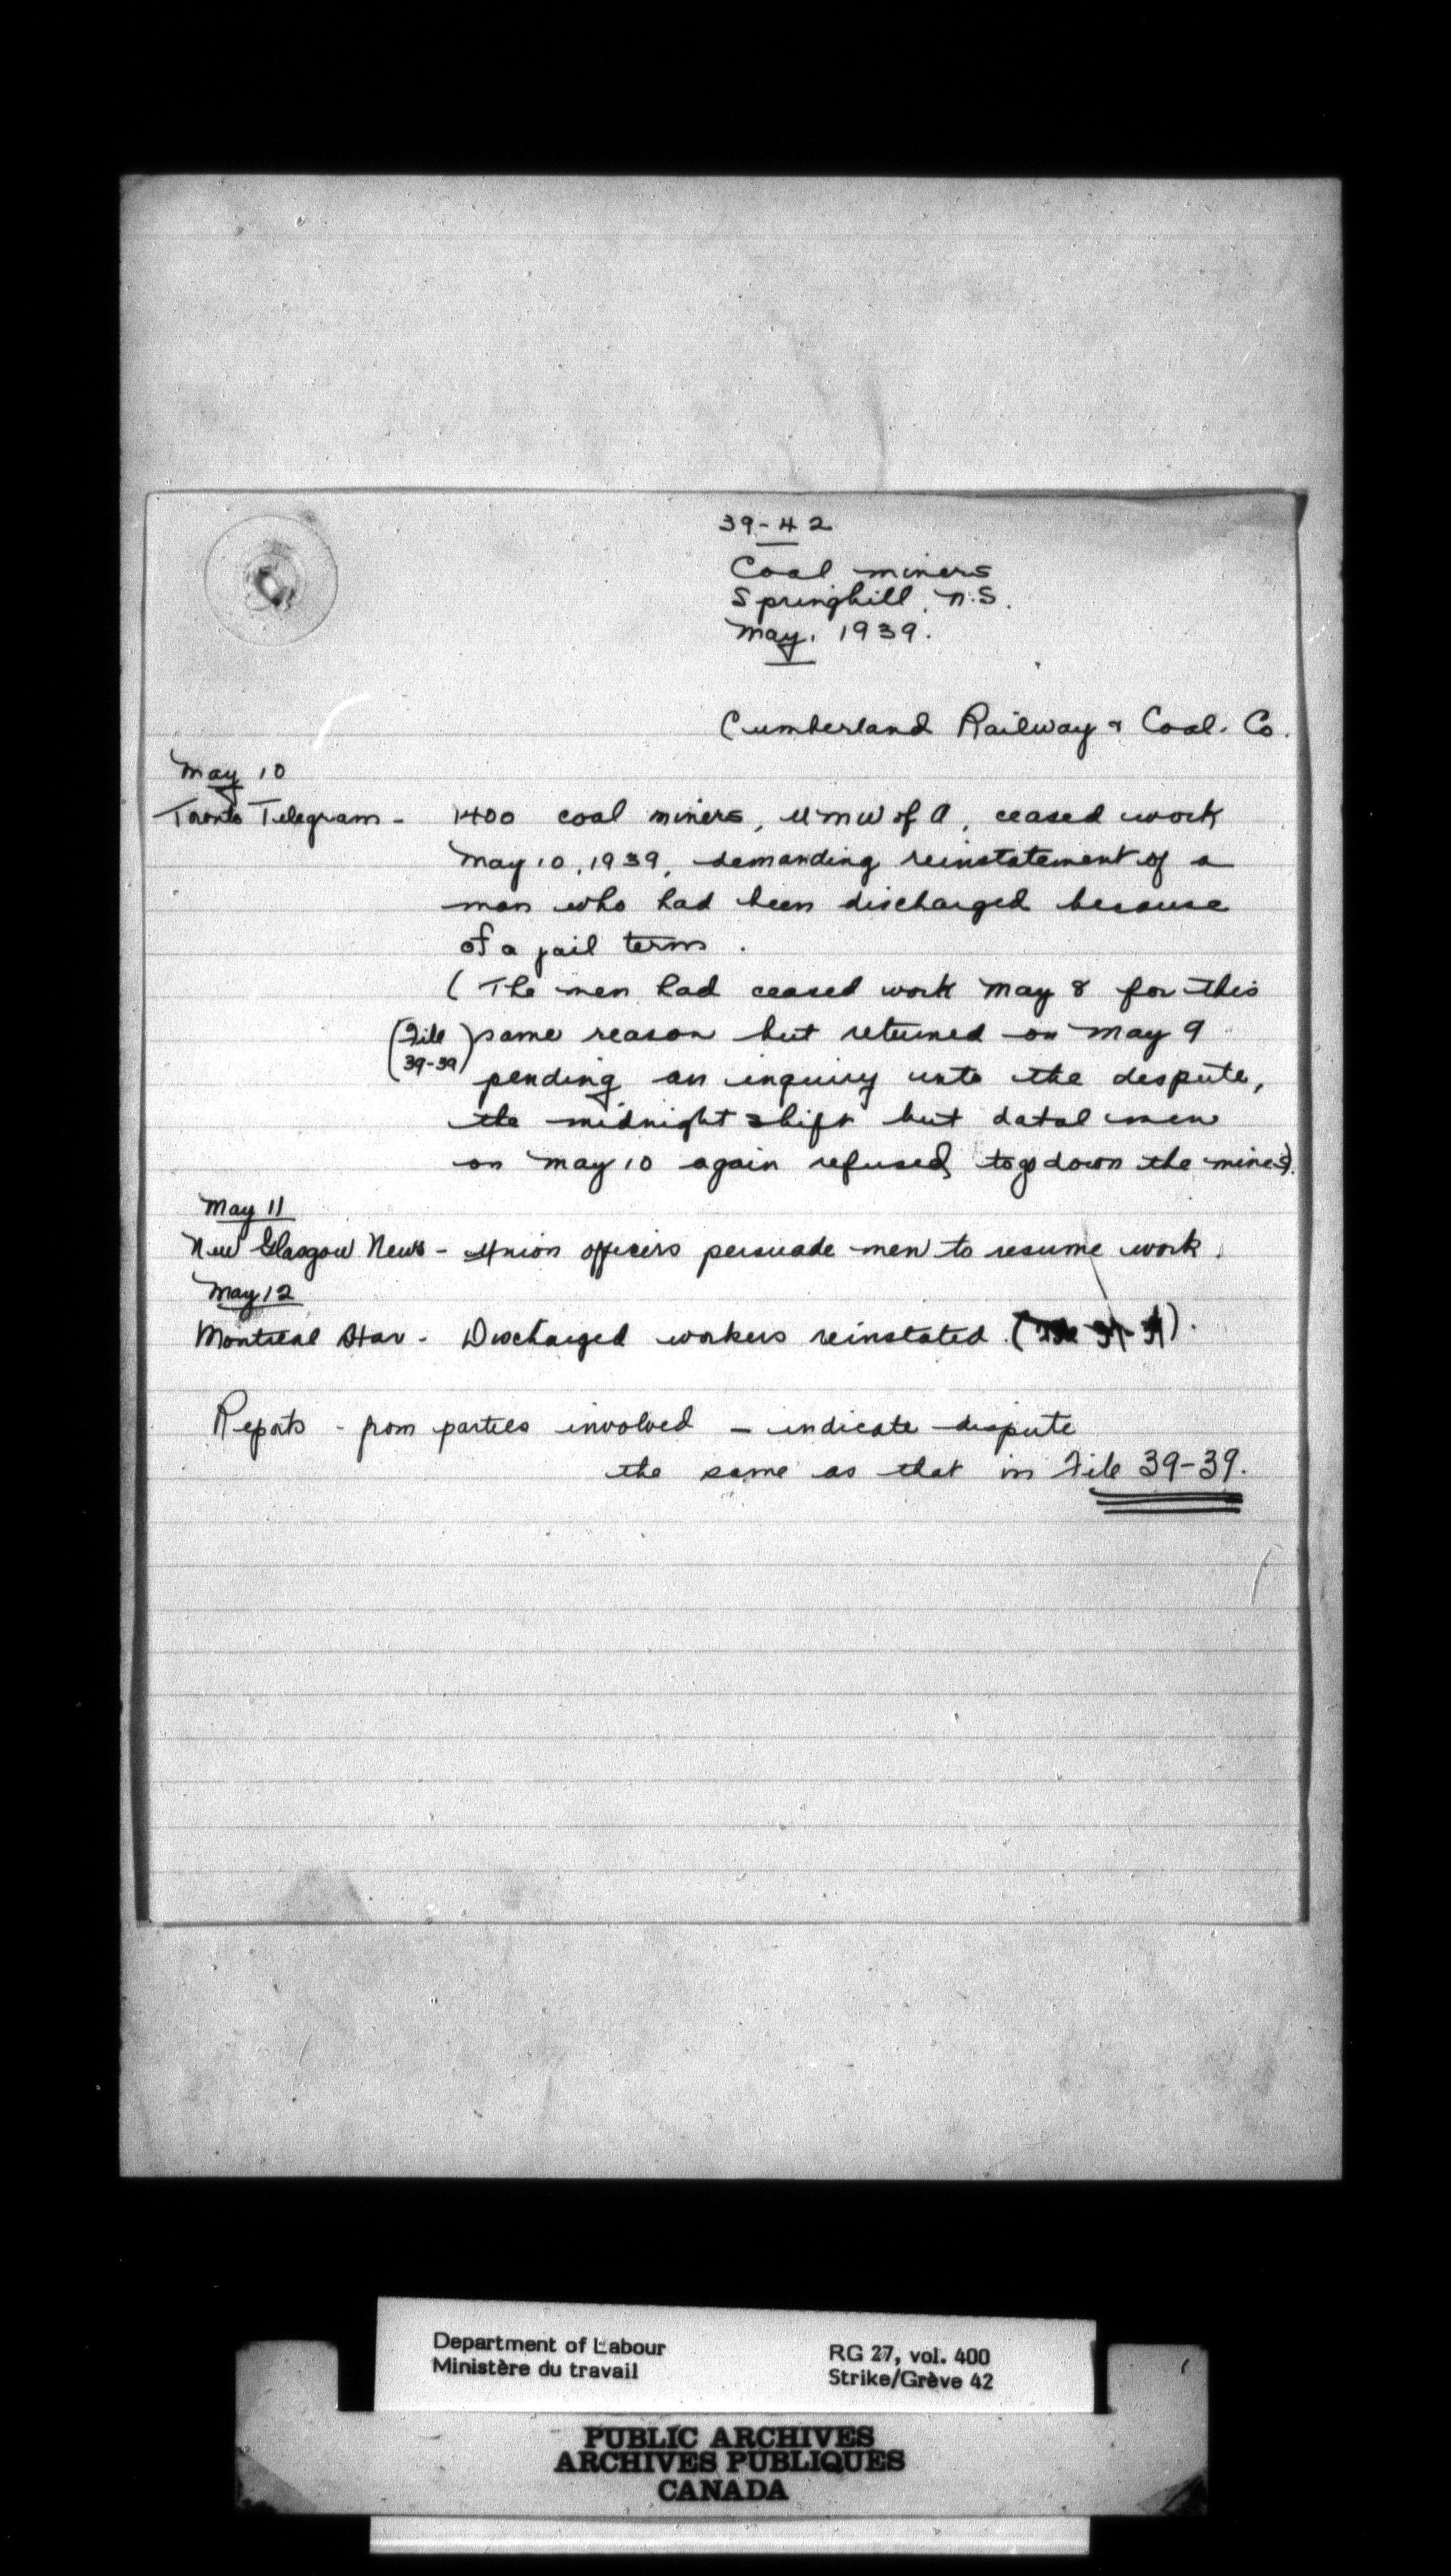 39-42
Coal miners
Springhill, N.S.
May, 1939.
Cumberland Railway & Coal. Co.
May 10
Toronto Telegram - 1400 coal miners, UMW of A, ceased work
May 10, 1939, demanding reinstatement of a
man who had been discharged because
of a jail term.
( The men had ceased work May 8 for this
(File 39-39) same reason but returned on May 9
pending an inquiry into the dispute,
the midnight shift but datal men
on May 10 again refused to go down the mines).
May 11
New Glasgow News - Union officers persuade men to resume work.
May 12
Montreal Star - Discharged workers reinstated.
Reports - from parties involved - indicate dispute
the same as that in File 39-39.
Department of Labour
Ministère du travail
RG 27, vol. 400
Strike/Grève 42
PUBLIC ARCHIVES
ARCHIVES PUBLIQUES
CANADA